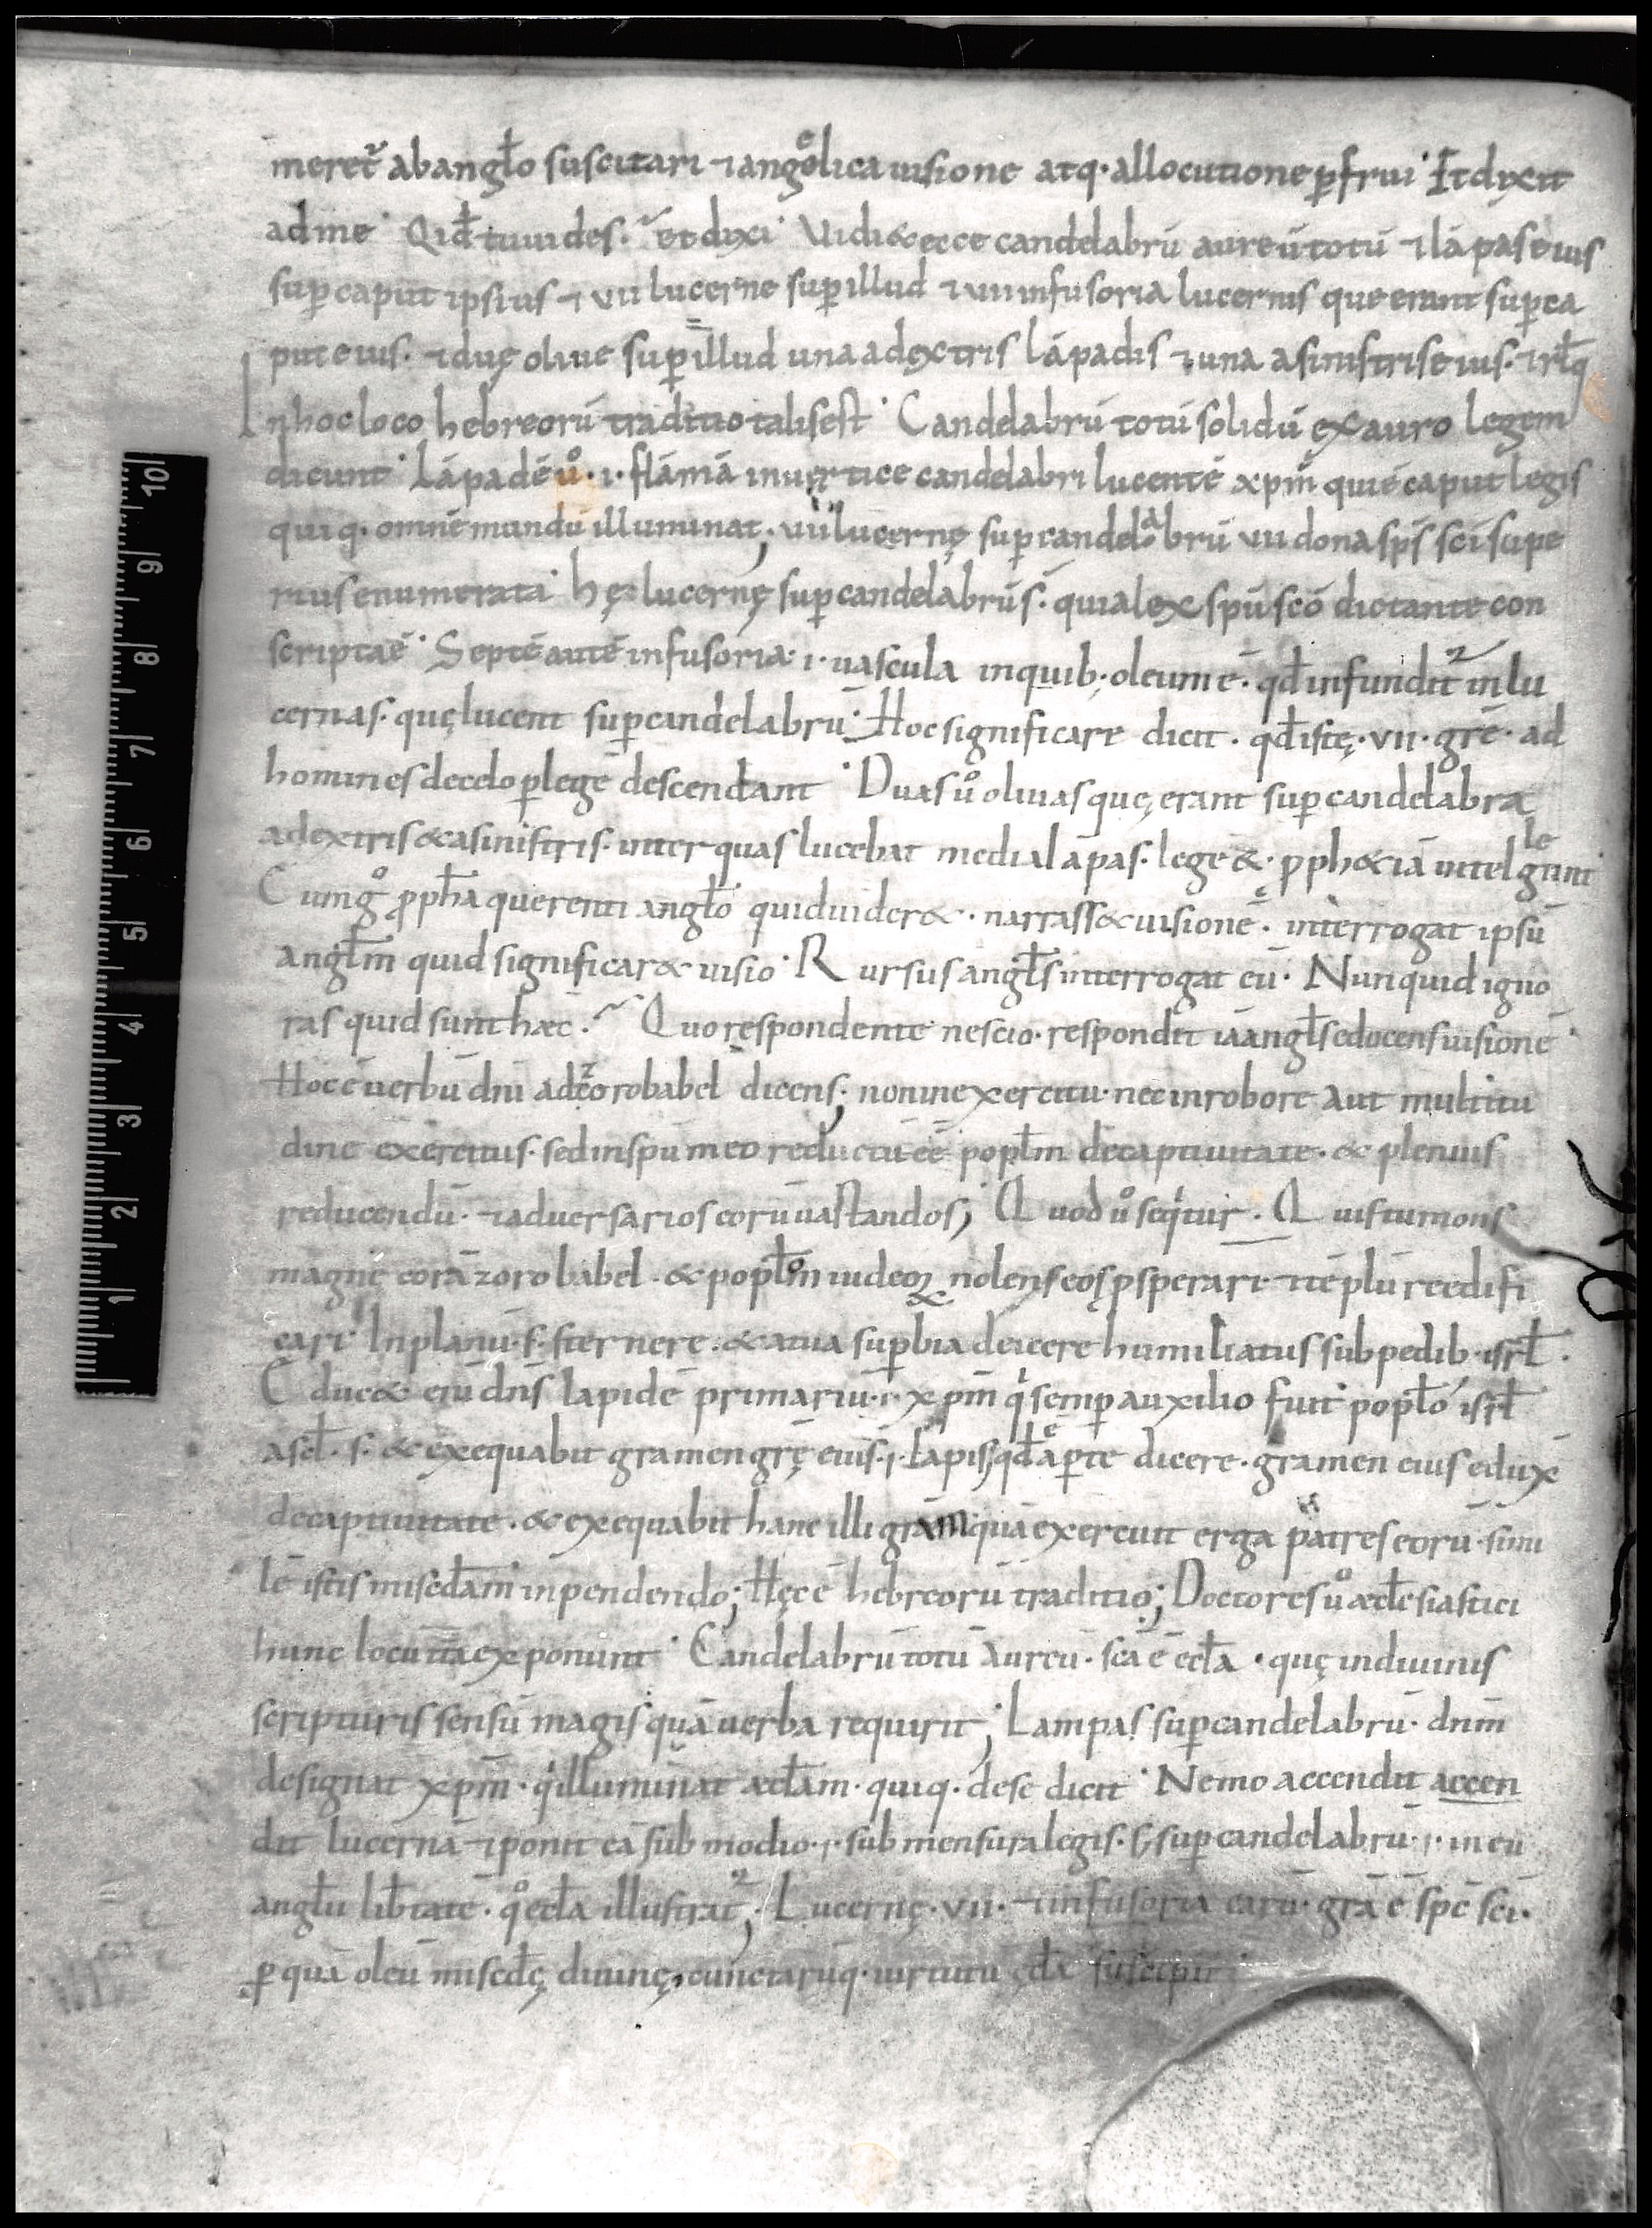 meret᷑ ab angł̄o suscitari ⁊ angelica uisione atq· allocutione ꝑfrui· Et dixit
ad me· Qid̄ tu uides·~ et dixi· Uidi & ecce candelabrū aureū totū ⁊ lāpas eius
suꝑ caput ipsius ⁊ vii lucerne suꝑ illud ⁊ vii infusoria lucernis que erant suꝑ ca
put eius· ⁊ duę oliue suꝑ illud una a dextris lāpadis ⁊ una a sinistris eius· ⁊ rlq̄
In hoc loco hebreorū traditio talis est· Candelabrū totū solidū ex auro legem
dicunt· Lāpadē uͦ·i· flāmā in uertice candelabri lucentē xpm̄ qui ē caput legis
qui q· omnē mundū illuminat; vii lucernę suꝑ candelabrū vii dona sps̄ sc̄i supe
rius enumerata· hę lucernę suꝑ candelabrū s̄· quia lex spū scō dictante con
scripta ē· Septē autē infusoria·i· uascula in quib; oleum ē· qd̄ infundit᷑ in lu
cernas· quę lucent suꝑ candelabrū· Hoc significare dicit· qd̄ istę·vii· grē· ad
homines de celo ꝑ legē descendant· Duas uͦ oliuas quę erant suꝑ candelabra
a dextris & a sinistris· inter quas lucebat media lāpas· legē &· ꝓph&iā intellegunt·
Cum gͦ ꝓph̄a querenti angł̄o quid uider&· narrass& uisionē· interrogat ipsū
angł̄m quid significar& uisio· Rursus angł̄s interrogat eū· Nunquid igno
ras quid sunt hæc·~ Quo respondente nescio· respondit iā angł̄s edocens uisionē·
Hoc ē uerbū dn̄i ad zorobabel dicens; non in exercitu· nec in robore aut multitu
dine exercitus· sed in spū meo reductū ēē popl̄m de captiuitate· & plenius
reducendū· ⁊ aduersarios eorū uastandos; Quod uͦ seqͥtur· Quis tu mons
magnę corā zorobabel· & popl̄m iudeoꝝ nolens eos ꝓsperari ⁊ tēplū reedifi
cari· In planū·s· sternere· & a tua suꝑbia deicere humiliatus sub pedib· isrł·
Educ& eiū dn̄s lapidē primariū·i· xpm̄ qͥ semꝑ auxilio fuit popl̄o isrł
a scł·s· & exequabit gramen grę eius·i· lapis qd̄ ē aꝑte dicere· gramen eius edux
de captiuitate· & exequabit hanc illi grām quā exercuit erga patres eorū· simi
lē istis misc̄dam inpendendo; Hęc ē hebreorū traditio; Doctores uͦ æcl̄esiastici
hunc locū ita exponunt· Candelabrū totū aureū· sc̄a ē ecl̄a· quę in diuinis
scripturis sensū magis quā uerba requirit; Lampas suꝑ candelabrū· dn̄m
designat xpm̄· qͥ illuminat æcl̄am· qui q· de se dicit· Nemo accendit accen
dit lucernā ⁊ ponit eā sub modio·i· sub mensura legis· s; suꝑ candelabrū·i· in eū
angł̄u lib̄tatē· qͦ ecl̄a illustrat᷑; Lucernę·vii· ⁊ infusoria earū· grā ē spc̄ sc̄i·
ꝑ quā oleū misc̄dę diuinę, cunctarūq· uirtutū ęcl̄a suscepit·